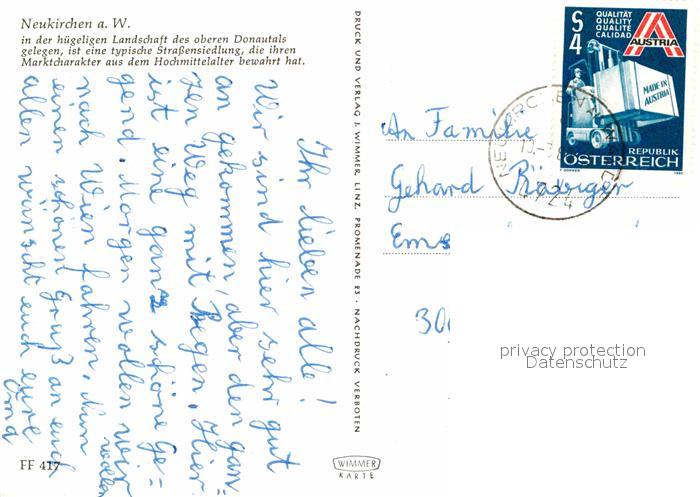 Neukirchen a. W.
in der hügeligen Landschaft des oberen Donautals
gelegen, ist eine typische Straßensiedlung, die ihren
Marktcharakter aus dem Hochmittelalter bewahrt hat.
Ihr lieben alle!
Wir sind hier sehr gut
an gekommen, aber den gan=
zen Weg mit Regen. Hier
ist eine ganz schöne Ge=
gend. Morgen wollen wir
nach Wien fahren. Nun
einen schönen Gruß an euch
allen wünscht euch eure
Oma
FF 417
DRUCK UND VERLAG J. WIMMER, LINZ, PROMENADE 23 · NACHDRUCK VERBOTEN
WIMMER
KARTE
S
4
QUALITÄT
QUALITY
QUALITE
CALIDAD
AUSTRIA
MADE IN
AUSTRIA
REPUBLIK
ÖSTERREICH
4724
An Familie
Gehard
Ems
30
privacy protection
Datenschutz